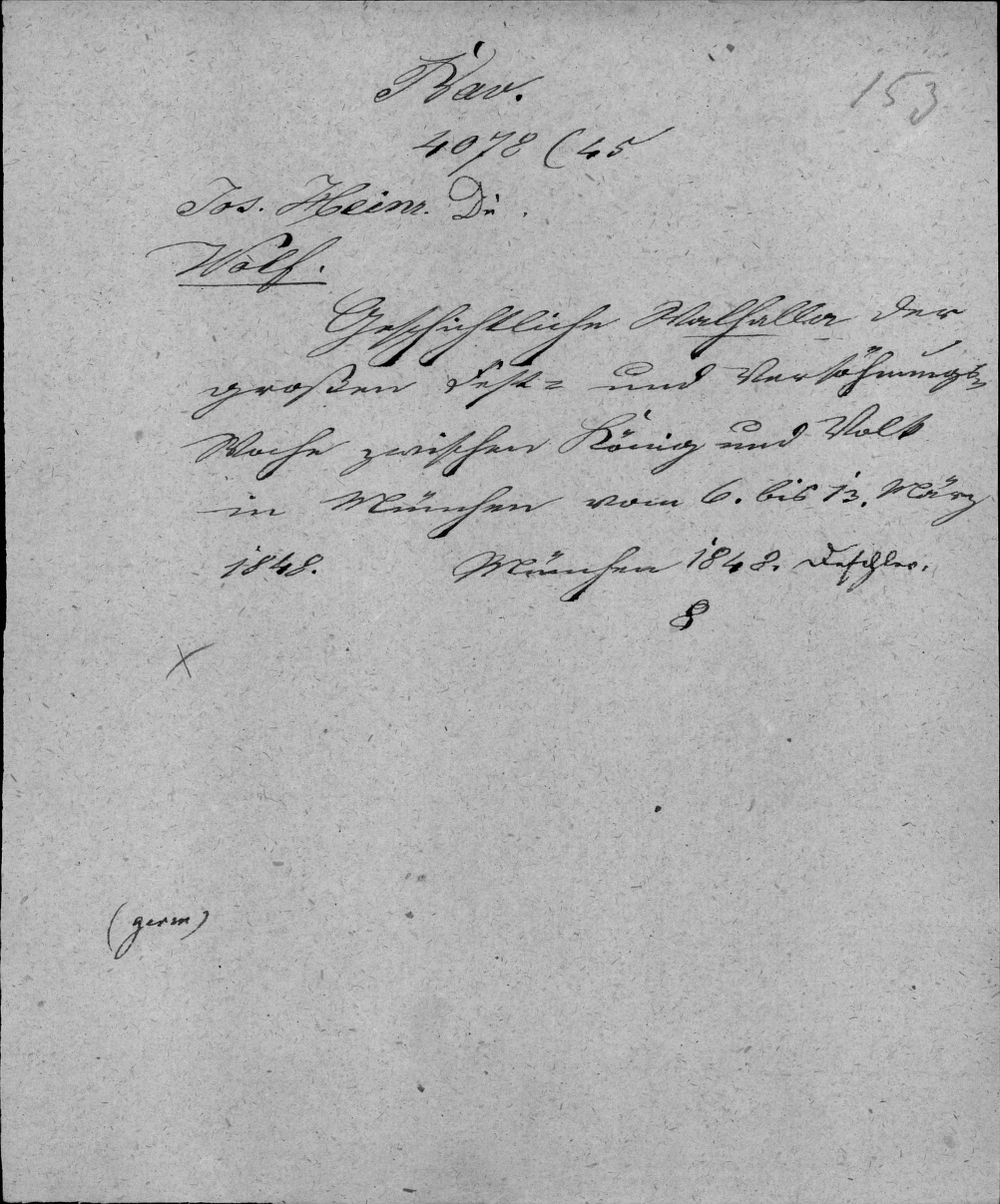 Bav.
153
4078 (45
Jos. Heinr.
Wolf.
Geschichtliche Walhalla der
großen Fest= und Versöhnungs=
Woche zwischen König und Volk
in München vom 6. bis 13. März
1848. München 1848. Deschler.
8
(germ)